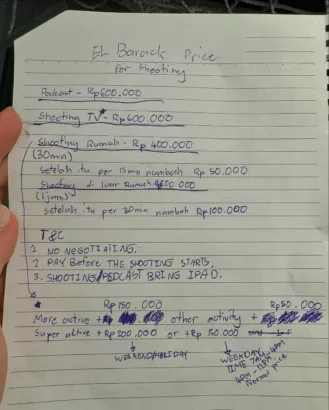 El Barack Price
for Shooting
Podcast - Rp600.000
Shooting TV* - Rp600.000
Shooting Rumah - Rp 400.000
(30min)
setelah itu per 15min nambah Rp 50.000
Shooting di luar Rumah 600.000
(1 jam)
setelah itu per 30min nambah Rp100.000
T&C
1 NO NEGOTIATING.
2. PAY BEFORE THE SHOOTING STARTS.
3. SHOOTING/PODCAST BRING IPAD.
* Rp 150.000 Rp 50.000
More active + other activity +
Super active + Rp 200.000 or +Rp 150.000
WEEKEND/HOLIDAY
WEEKDAY
TIME 7AM-4PM
4PM-12PM
Normal price